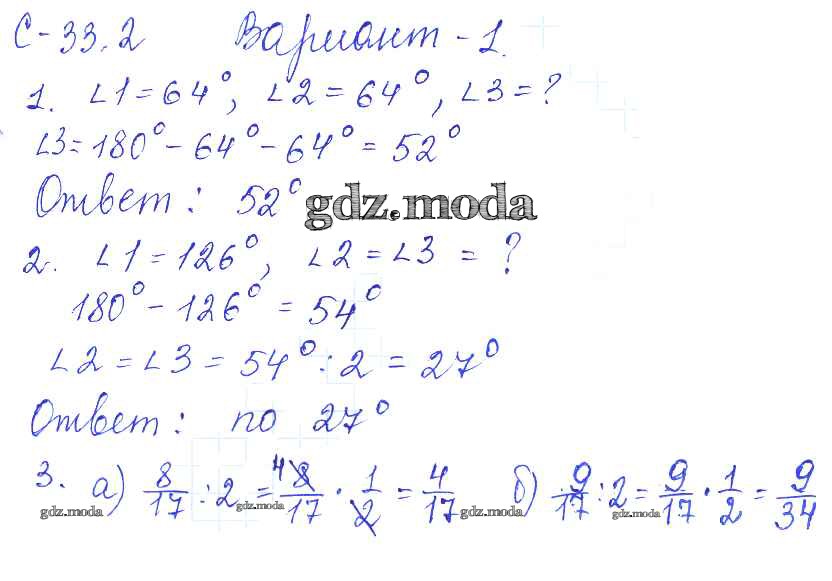 С-33.2 Вариант-1.
1. ∠1=64°, ∠2=64°, ∠3=?
∠3=180°-64°-64°=52°
Ответ: 52°
gdz.moda
2. ∠1=126°, ∠2=∠3=?
180°-126°=54°
∠2=∠3=54°:2=27°
Ответ: по 27°
3. а) 8/17 : 2 = 4 8/17 · 1/2 = 4/17 б) 9/17 : 2 = 9/17 · 1/2 = 9/34
gdz.moda gdz.moda gdz.moda gdz.moda